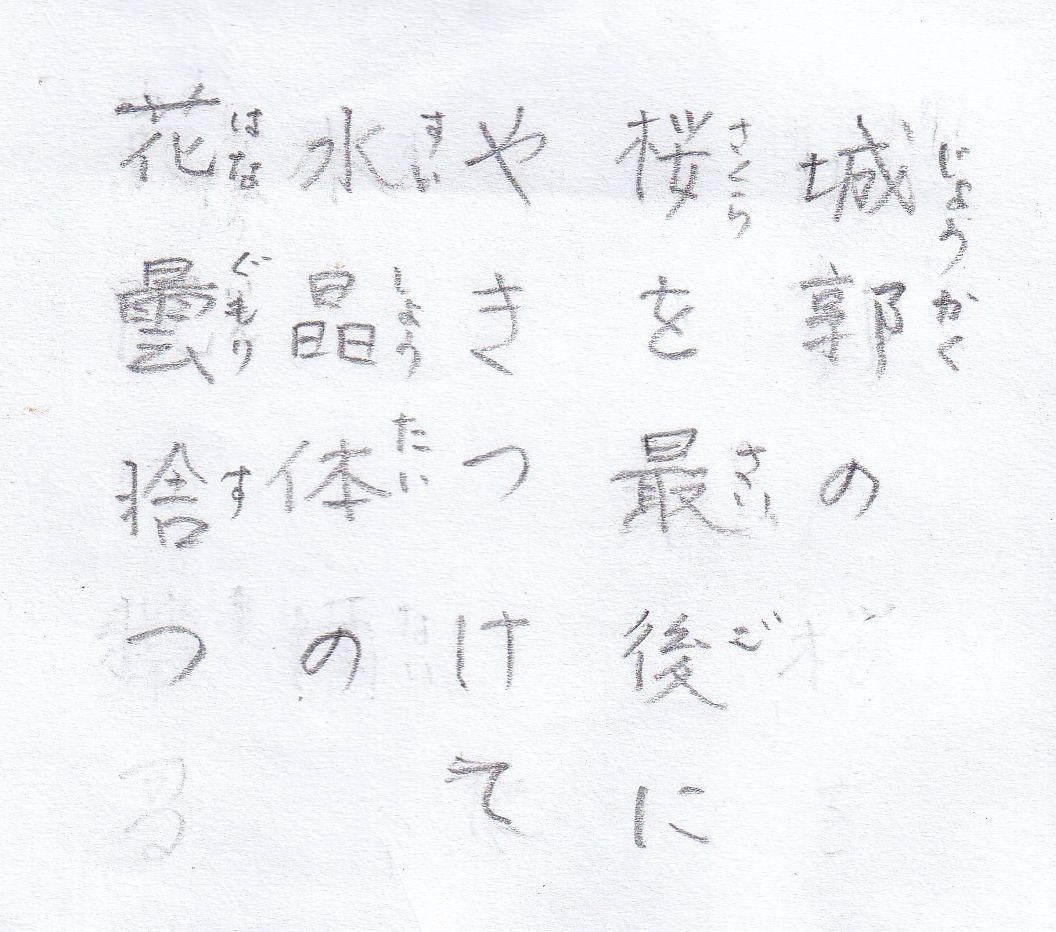 城郭の
桜を最後に
やきつけて
水晶体の
花曇捨つ
じょうかく
さくら
さいご
すいしょうたい
はなぐもり
す